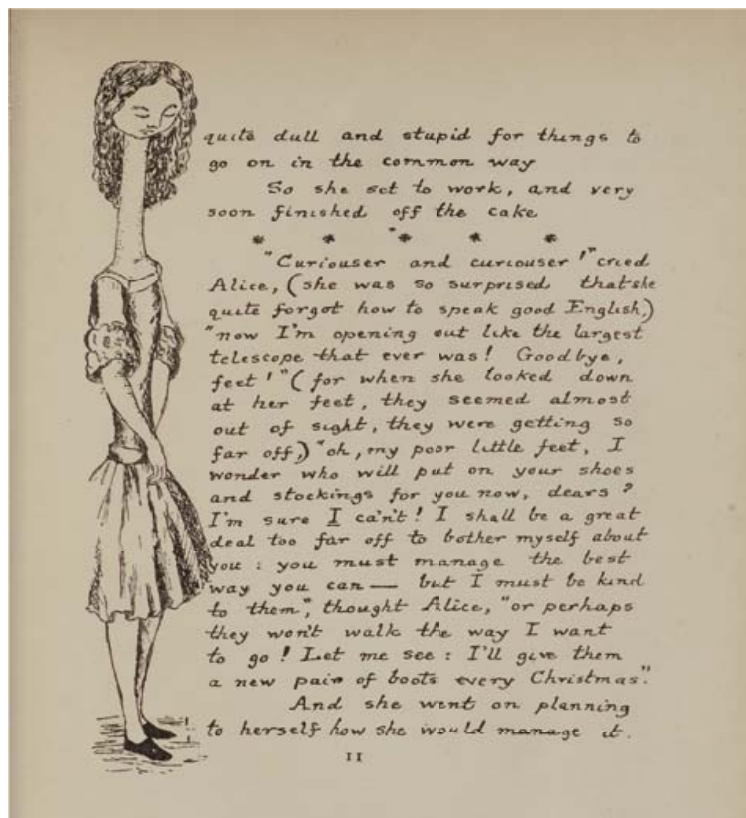 quite dull and stupid for things to
go on in the common way
So she set to work, and very
soon finished off the cake
* * * * *
"Curiouser and curiouser!" cried
Alice, (she was so surprised that she
quite forgot how to speak good English,)
"now I'm opening out like the largest
telescope that ever was! Goodbye,
feet!" (for when she looked down
at her feet, they seemed almost
out of sight, they were getting so
far off,) "oh, my poor little feet, I
wonder who will put on your shoes
and stockings for you now, dears?
I'm sure I can't! I shall be a great
deal too far off to bother myself about
you: you must manage the best
way you can — but I must be kind
to them", thought Alice, "or perhaps
they won't walk the way I want
to go! Let me see: I'll give them
a new pair of boots every Christmas."
And she went on planning
to herself how she would manage it.
11